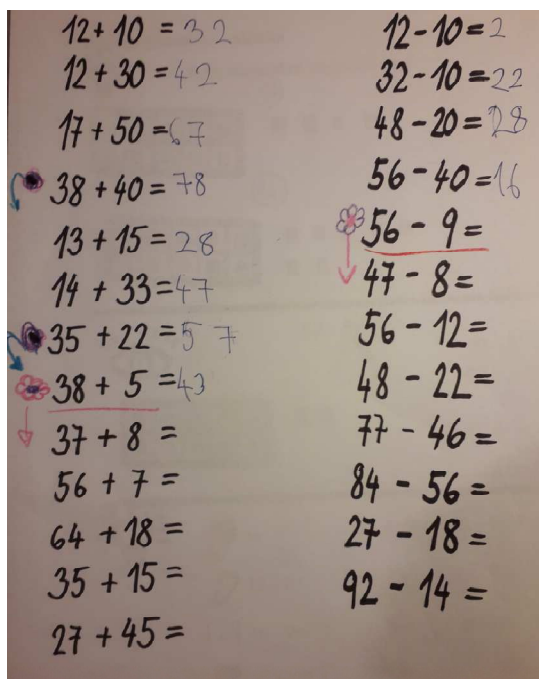 12 + 10 = 32
12 + 30 = 42
17 + 50 = 67
38 + 40 = 78
13 + 15 = 28
14 + 33 = 47
35 + 22 = 57
38 + 5 = 43
37 + 8 =
56 + 7 =
64 + 18 =
35 + 15 =
27 + 45 =
12 - 10 = 2
32 - 10 = 22
48 - 20 = 28
56 - 40 = 16
56 - 9 =
47 - 8 =
56 - 12 =
48 - 22 =
77 - 46 =
84 - 56 =
27 - 18 =
92 - 14 =